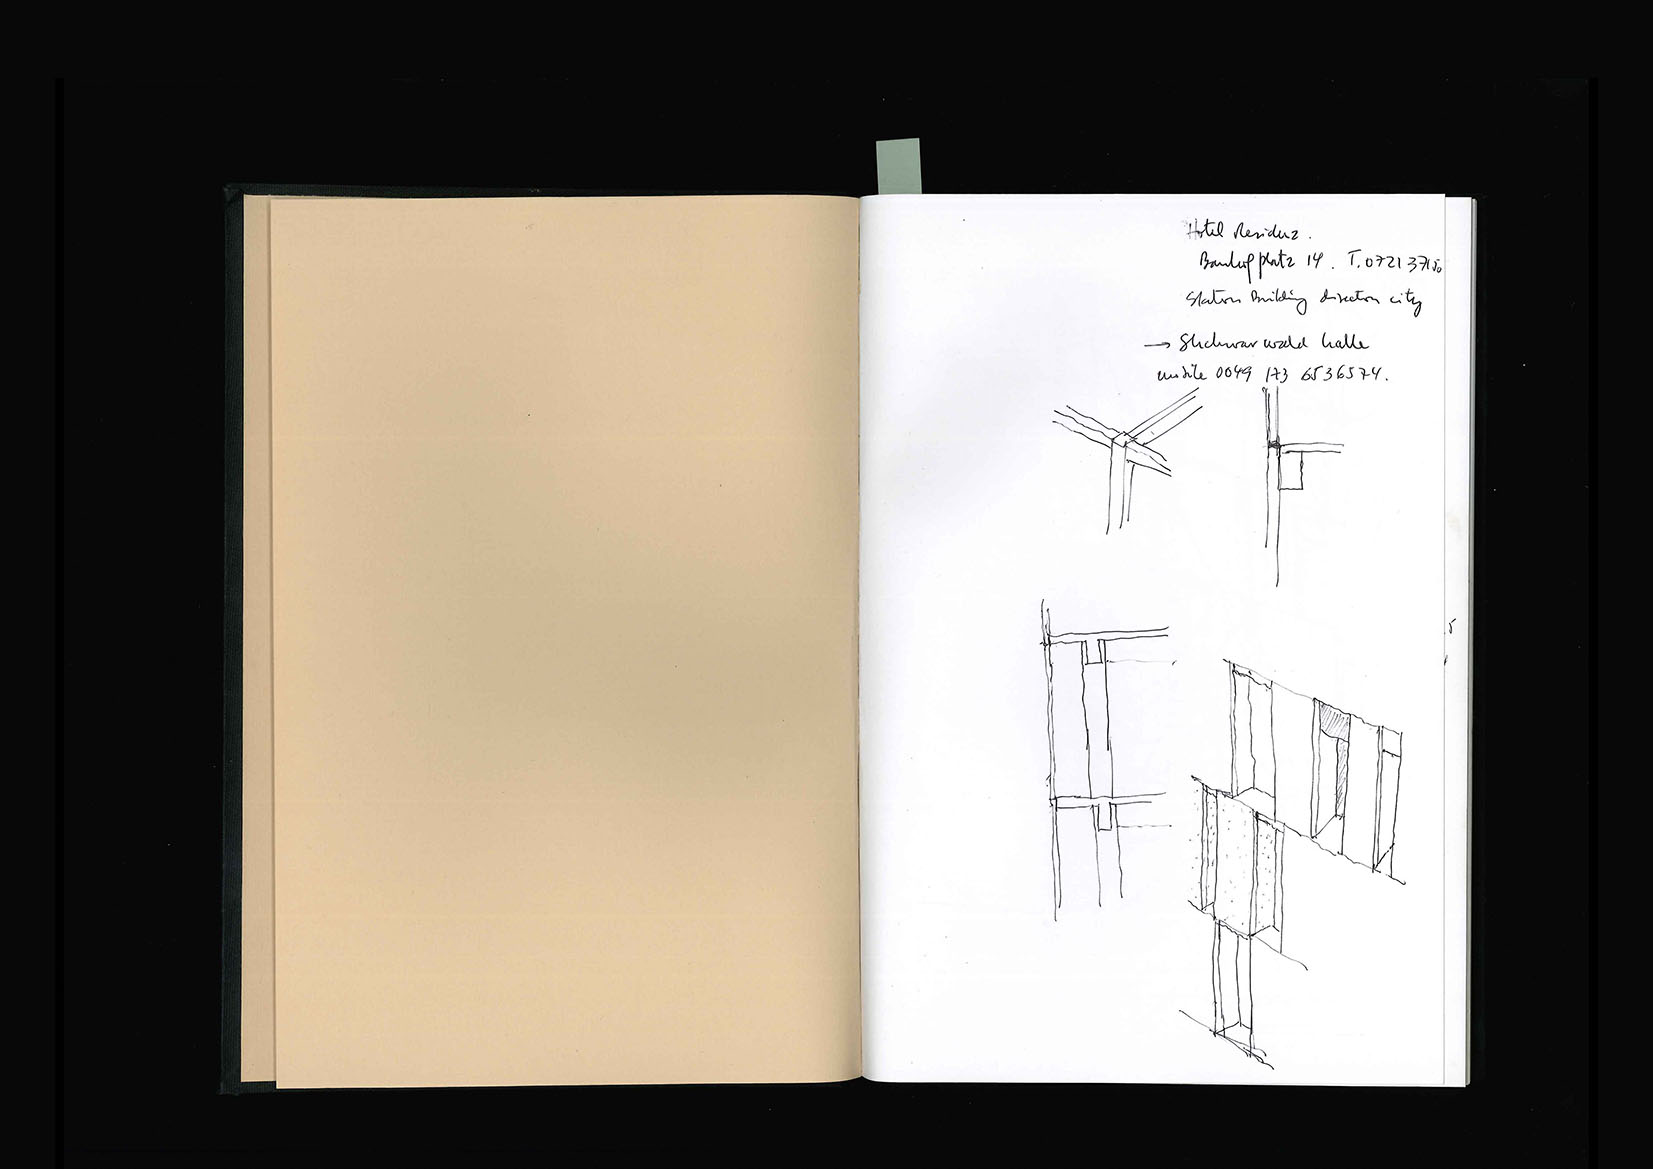 Hotel Residenz.
Banhofplatz 14. T. 0721 37150
Station Building direction city
→ Shchwarwald halle
mobile 0049 173 6536574.
5